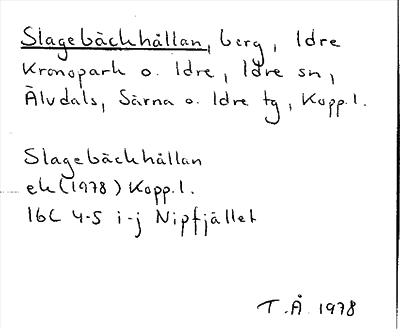 Slagebäckhållan, berg, Idre
Kronopark o. Idre, Idre sn,
Älvdals, Särna o. Idre tg, Kopp.l.
Slagebäckhållan
ek (1978) Kopp.l.
16C 4-5 i-j Nipfjället
T.Å. 1978